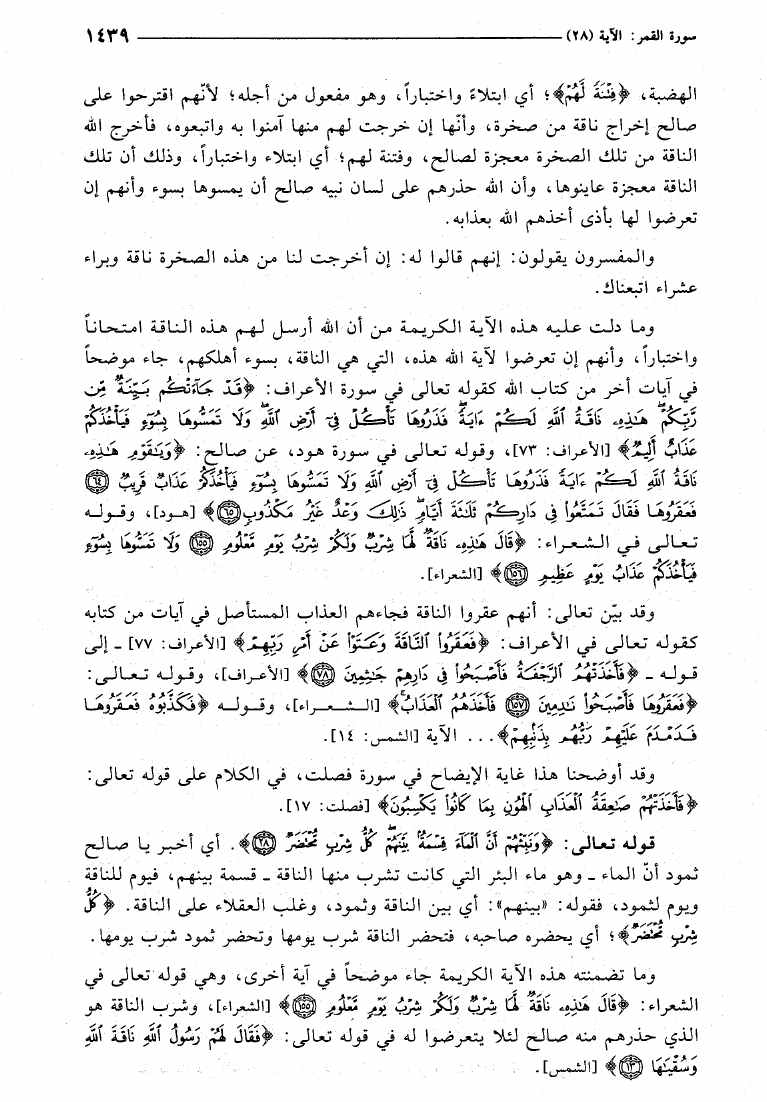 سورة القمر: الآية (٢٨) ١٤٣٩
الهضبة، ﴿فِتْنَةً لَّهُمْ﴾؛ أي ابتلاءً واختباراً، وهو مفعول من أجله؛ لأنّهم اقترحوا على
صالح إخراج ناقة من صخرة، وأنّها إن خرجت لهم منها آمنوا به واتبعوه، فأخرج الله
الناقة من تلك الصخرة معجزة لصالح، وفتنة لهم؛ أي ابتلاء واختباراً، وذلك أن تلك
الناقة معجزة عاينوها، وأن الله حذرهم على لسان نبيه صالح أن يمسوها بسوء وأنهم إن
تعرضوا لها بأذى أخذهم الله بعذابه.
والمفسرون يقولون: إنهم قالوا له: إن أخرجت لنا من هذه الصخرة ناقة وبراء
عشراء اتبعناك.
وما دلت عليه هذه الآية الكريمة من أن الله أرسل لهم هذه الناقة امتحاناً
واختباراً، وأنهم إن تعرضوا لآية الله هذه، التي هي الناقة، بسوء أهلكهم، جاء موضحاً
في آيات أخر من كتاب الله كقوله تعالى في سورة الأعراف: ﴿قَدْ جَآءَتْكُم بَيِّنَةٌ مِّن
رَّبِّكُمْ هَٰذِهِۦ نَاقَةُ ٱللَّهِ لَكُمْ ءَايَةً فَذَرُوهَا تَأْكُلْ فِىٓ أَرْضِ ٱللَّهِ وَلَا تَمَسُّوهَا بِسُوٓءٍ فَيَأْخُذَكُمْ
عَذَابٌ أَلِيمٌ﴾ [الأعراف: ٧٣]، وقوله تعالى في سورة هود، عن صالح: ﴿وَيَٰقَوْمِ هَٰذِهِۦ
نَاقَةُ ٱللَّهِ لَكُمْ ءَايَةً فَذَرُوهَا تَأْكُلْ فِىٓ أَرْضِ ٱللَّهِ وَلَا تَمَسُّوهَا بِسُوٓءٍ فَيَأْخُذَكُمْ عَذَابٌ قَرِيبٌ ٦٤
فَعَقَرُوهَا فَقَالَ تَمَتَّعُوا۟ فِى دَارِكُمْ ثَلَٰثَةَ أَيَّامٍ ذَٰلِكَ وَعْدٌ غَيْرُ مَكْذُوبٍ ٦٥﴾ [هود]، وقوله
تعالى في الشعراء: ﴿قَالَ هَٰذِهِۦ نَاقَةٌ لَّهَا شِرْبٌ وَلَكُمْ شِرْبُ يَوْمٍ مَّعْلُومٍ ١٥٥ وَلَا تَمَسُّوهَا بِسُوٓءٍ
فَيَأْخُذَكُمْ عَذَابُ يَوْمٍ عَظِيمٍ ١٥٦﴾ [الشعراء].
وقد بيّن تعالى: أنهم عقروا الناقة فجاءهم العذاب المستأصل في آيات من كتابه
كقوله تعالى في الأعراف: ﴿فَعَقَرُوا۟ ٱلنَّاقَةَ وَعَتَوْا۟ عَنْ أَمْرِ رَبِّهِمْ﴾ [الأعراف: ٧٧] ـ إلى
قوله ـ ﴿فَأَخَذَتْهُمُ ٱلرَّجْفَةُ فَأَصْبَحُوا۟ فِى دَارِهِمْ جَٰثِمِينَ ٧٨﴾ [الأعراف]، وقوله تعالى:
﴿فَعَقَرُوهَا فَأَصْبَحُوا۟ نَٰدِمِينَ ١٥٧ فَأَخَذَهُمُ ٱلْعَذَابُ﴾ [الشعراء]، وقوله ﴿فَكَذَّبُوهُ فَعَقَرُوهَا
فَدَمْدَمَ عَلَيْهِمْ رَبُّهُم بِذَنۢبِهِمْ﴾... الآية [الشمس: ١٤].
وقد أوضحنا هذا غاية الإيضاح في سورة فصلت، في الكلام على قوله تعالى:
﴿فَأَخَذَتْهُمْ صَٰعِقَةُ ٱلْعَذَابِ ٱلْهُونِ بِمَا كَانُوا۟ يَكْسِبُونَ﴾ [فصلت: ١٧].
قوله تعالى: ﴿وَنَبِّئْهُمْ أَنَّ ٱلْمَآءَ قِسْمَةٌۢ بَيْنَهُمْ كُلُّ شِرْبٍ مُّحْتَضَرٌ ٢٨﴾. أي أخبر يا صالح
ثمود أنّ الماء ـ وهو ماء البئر التي كانت تشرب منها الناقة ـ قسمة بينهم، فيوم للناقة
ويوم لثمود، فقوله: «بينهم»: أي بين الناقة وثمود، وغلب العقلاء على الناقة. ﴿كُلُّ
شِرْبٍ مُّحْتَضَرٌ﴾؛ أي يحضره صاحبه، فتحضر الناقة شرب يومها وتحضر ثمود شرب يومها.
وما تضمنته هذه الآية الكريمة جاء موضحاً في آية أخرى، وهي قوله تعالى في
الشعراء: ﴿قَالَ هَٰذِهِۦ نَاقَةٌ لَّهَا شِرْبٌ وَلَكُمْ شِرْبُ يَوْمٍ مَّعْلُومٍ ١٥٥﴾ [الشعراء]، وشرب الناقة هو
الذي حذرهم منه صالح لئلا يتعرضوا له في قوله تعالى: ﴿فَقَالَ لَهُمْ رَسُولُ ٱللَّهِ نَاقَةَ ٱللَّهِ
وَسُقْيَٰهَا ١٣﴾ [الشمس].